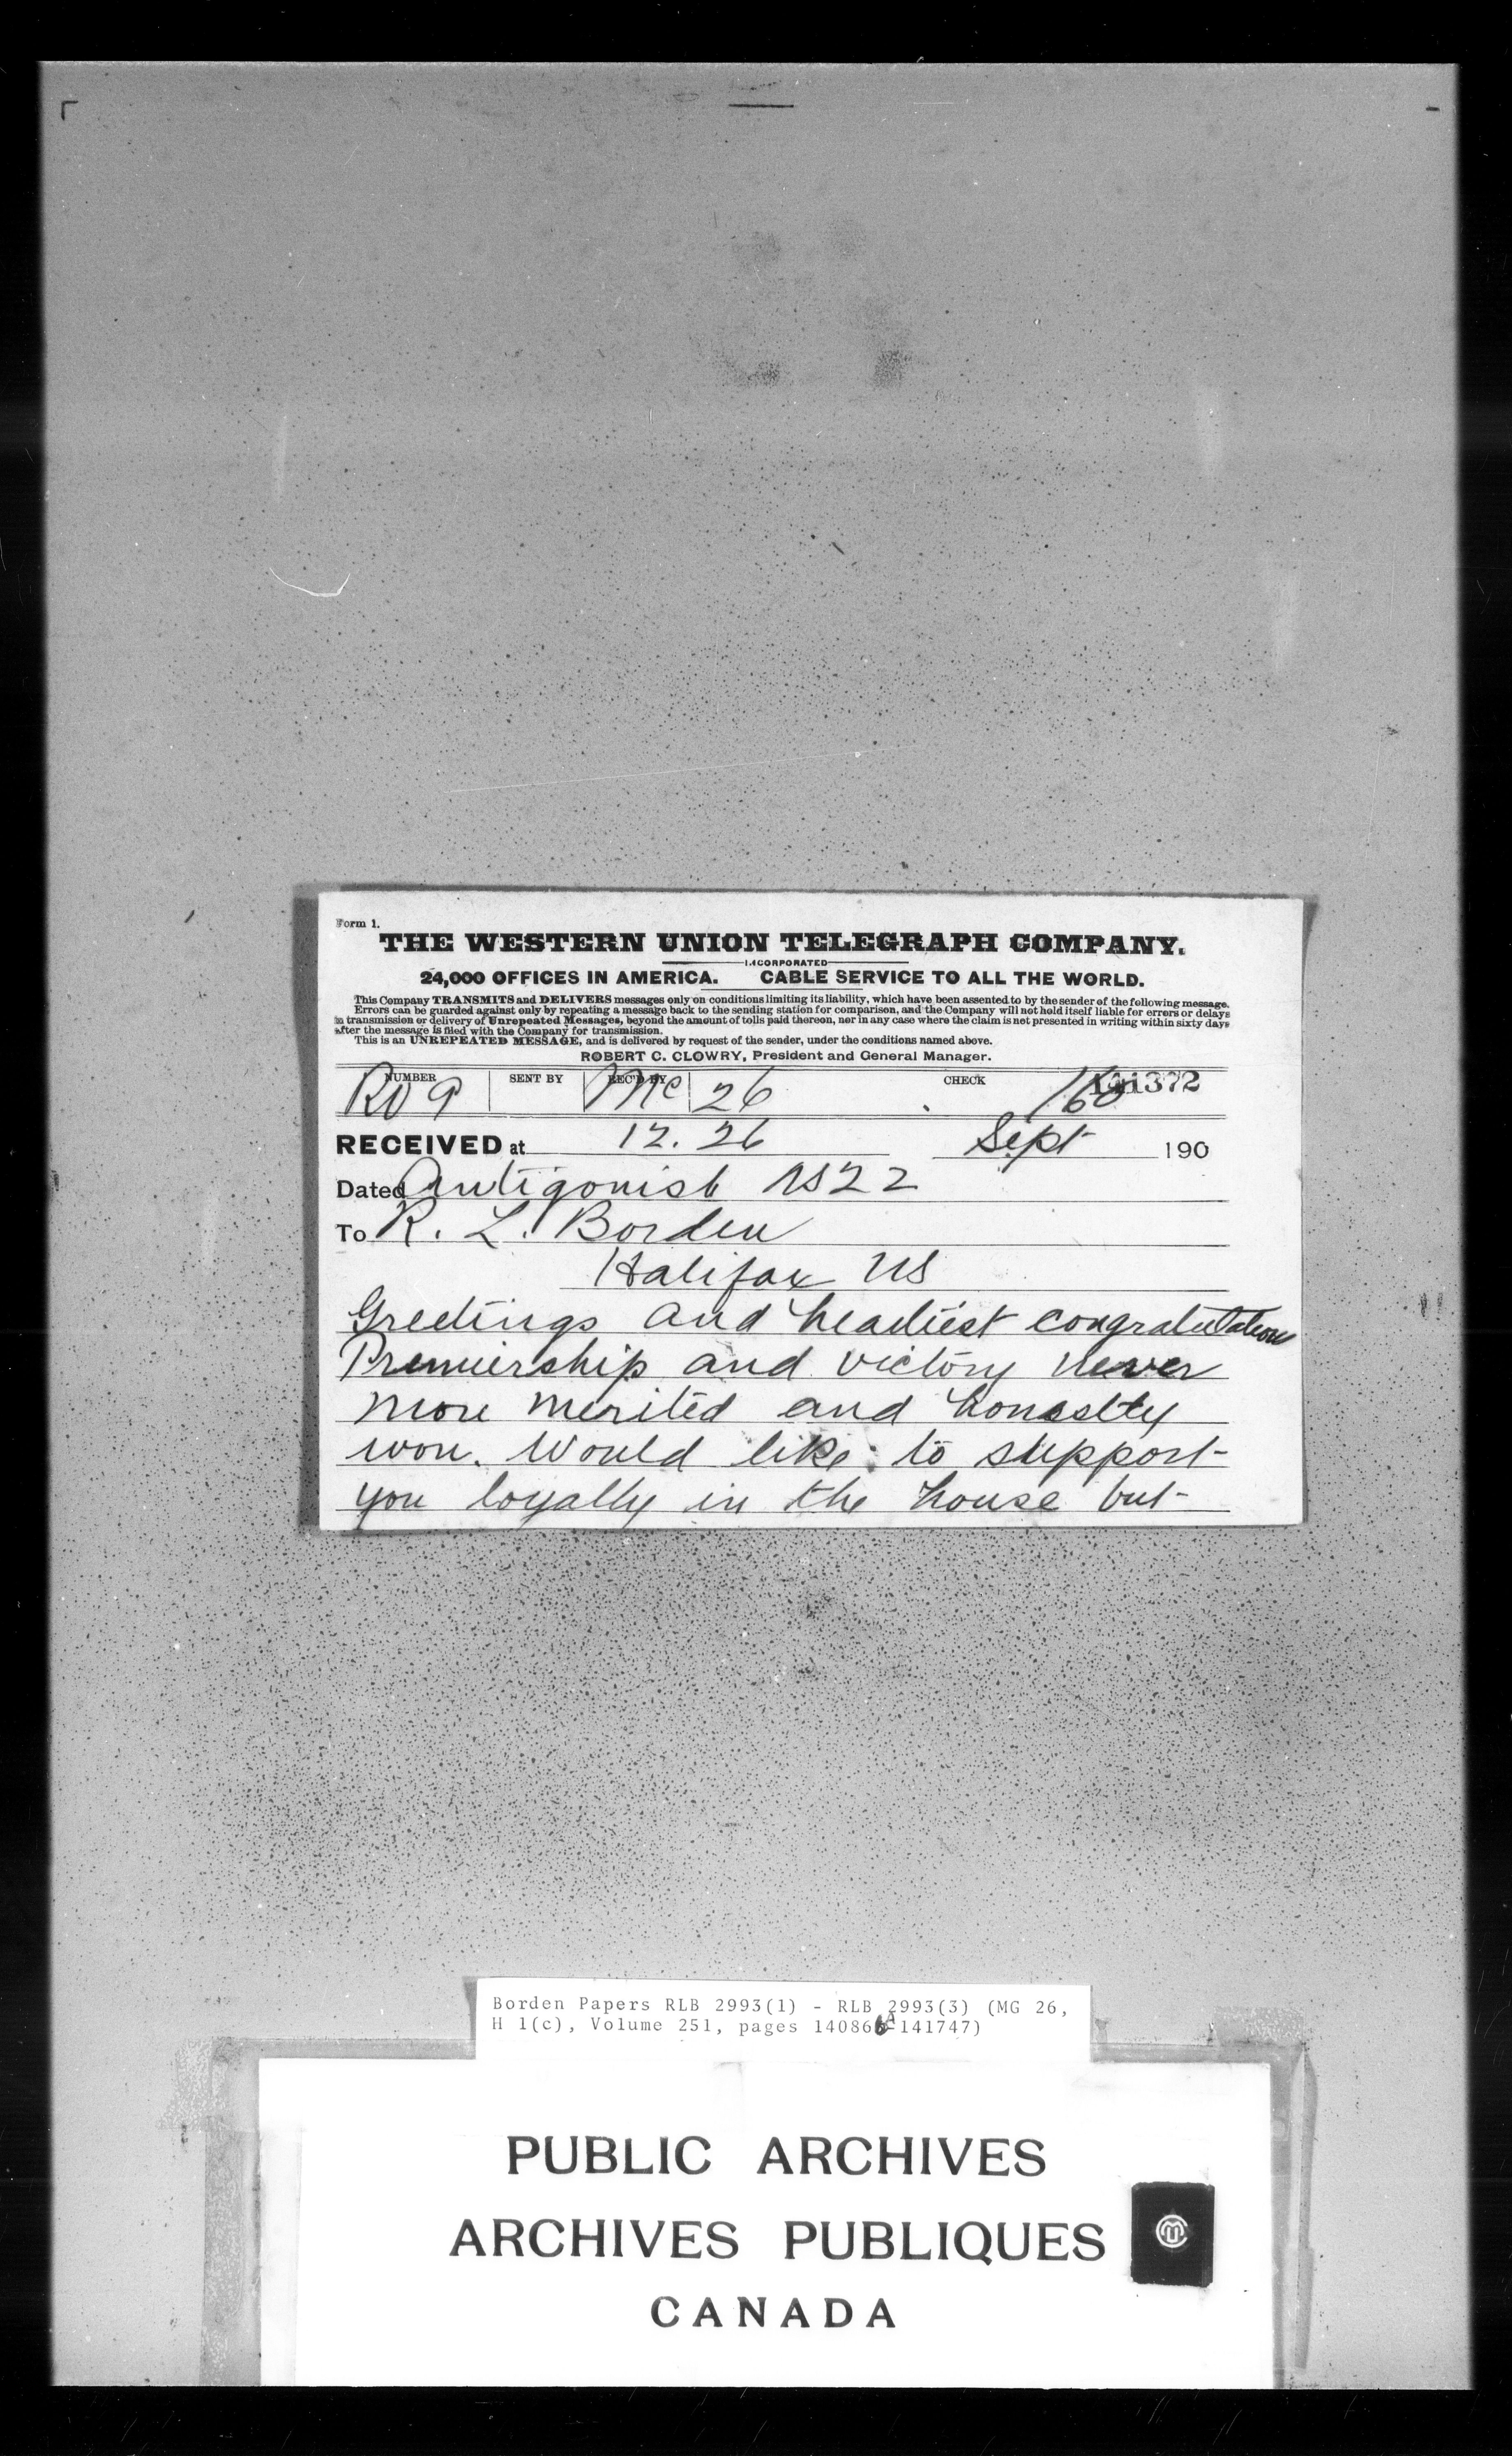 Form 1.
THE WESTERN UNION TELEGRAPH COMPANY.
INCORPORATED
24,000 OFFICES IN AMERICA. CABLE SERVICE TO ALL THE WORLD.
This Company TRANSMITS and DELIVERS messages only on conditions limiting its liability, which have been assented to by the sender of the following message.
Errors can be guarded against only by repeating a message back to the sending station for comparison, and the Company will not hold itself liable for errors or delays
in transmission or delivery of Unrepeated Messages, beyond the amount of tolls paid thereon, nor in any case where the claim is not presented in writing within sixty days
after the message is filed with the Company for transmission.
This is an UNREPEATED MESSAGE, and is delivered by request of the sender, under the conditions named above.
ROBERT C. CLOWRY, President and General Manager.
NUMBER SENT BY REC'D BY CHECK
Mc 26 141372
RECEIVED at 12.26 Sept 190
Dated Antigonish NS 22
To R. L. Borden
Halifax NS
Greetings and heartiest congratulations
Premiership and victory never
more merited and honestly
won. Would like to support
you loyally in the house but
Borden Papers RLB 2993(1) - RLB 2993(3) (MG 26,
H 1(c), Volume 251, pages 140866A-141747)
PUBLIC ARCHIVES
ARCHIVES PUBLIQUES
CANADA